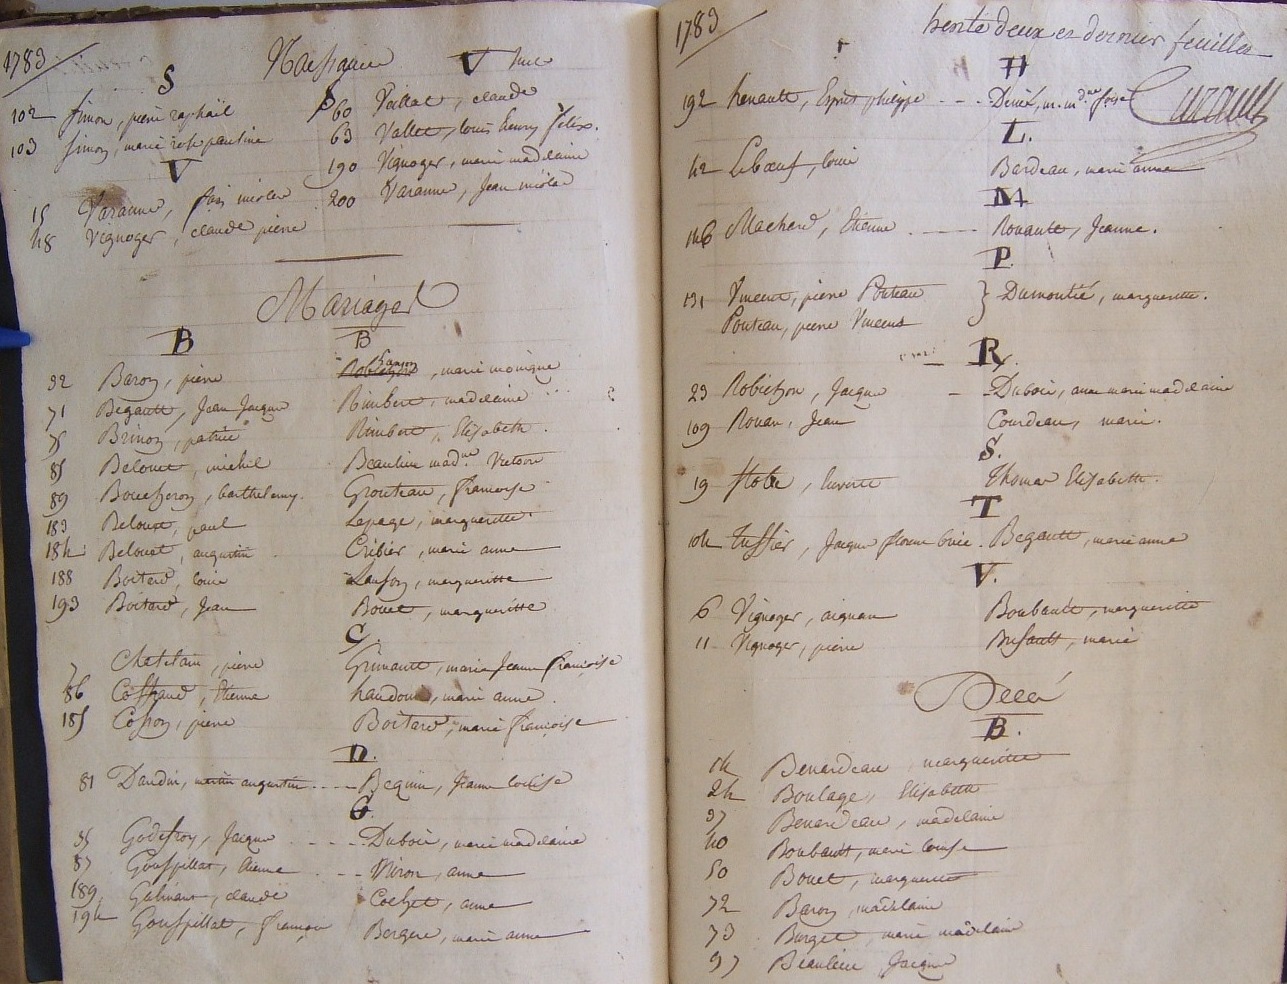 1783
Naissance
S
V
102 Simon, pierre raphael
103 Simon, marie rose pauline
V
15 Varanne, fois nicolas
48 Vignoger, claude pierre
60 Vallat, claude
63 Vallet, louis henry felix.
190 Vignoger, marie madelaine
200 Varanne, Jean nicolas
Mariages
B
B
32 Baron, pierre , marie monique
71 Begault, Jean Jacque Rimbert, madelaine
75 Brinon, patrice Rimbert, Elisabeth.
85 Belouet, michel Beaulieu mad.ne Victoire
89 Boucheron, barthelemy. Grouteau, francoise
183 Belouet, paul Lepage, margueritte
184 Belouet, augustin Cribier, marie anne
188 Boitard, louis Lanson, margueritte
193 Boitard, Jean Bouet, margueritte
C.
7 Chatelain, pierre Grimault, marie Jeanne françoise
86 , Etienne haudouin, marie anne.
185 Cosson, pierre Boitard, marie françoise
D.
81 Daudin, martin augustin Bequin, Jeanne louise
G.
35 Godefroy, Jacque Dubois, marie madelaine
87 Gouspillat, Etienne Miron, anne
189 Galinant, claude Cochet, anne
194 Gouspillat, françois Bergere, marie anne
1783
trente deux et dernier feuillet
H
192 henault, Esprit philippe
L.
42 Lebœuf, louis Bardeau, marie anne
M
146 Machard, Etienne Rouault, Jeanne.
P.
131 Vincent, pierre Pouteau } Dumontié, margueritte.
Pouteau, pierre Vincent
R,
23 Robichon, Jacque Dubois, anne marie madelaine
109 Rouau, Jean Courdeau, marie.
S.
19 Stobe, Euverte Thomas Elisabeth.
T
104 Tussier, Jacque Begault, marie anne
V.
6 Vignoger, aignan Boubault, margueritte
11 Vignoger, pierre Brisault, marie
Decé
B.
14 Benardeau margueritte
24 Boulage, Elisabeth
37 Benardeau, madelaine
40 Boubault, marie louise
50 Bouet, margueritte
72 Baron, madelaine
73 Burget, marie madelaine
97 Beaulieu Jacque